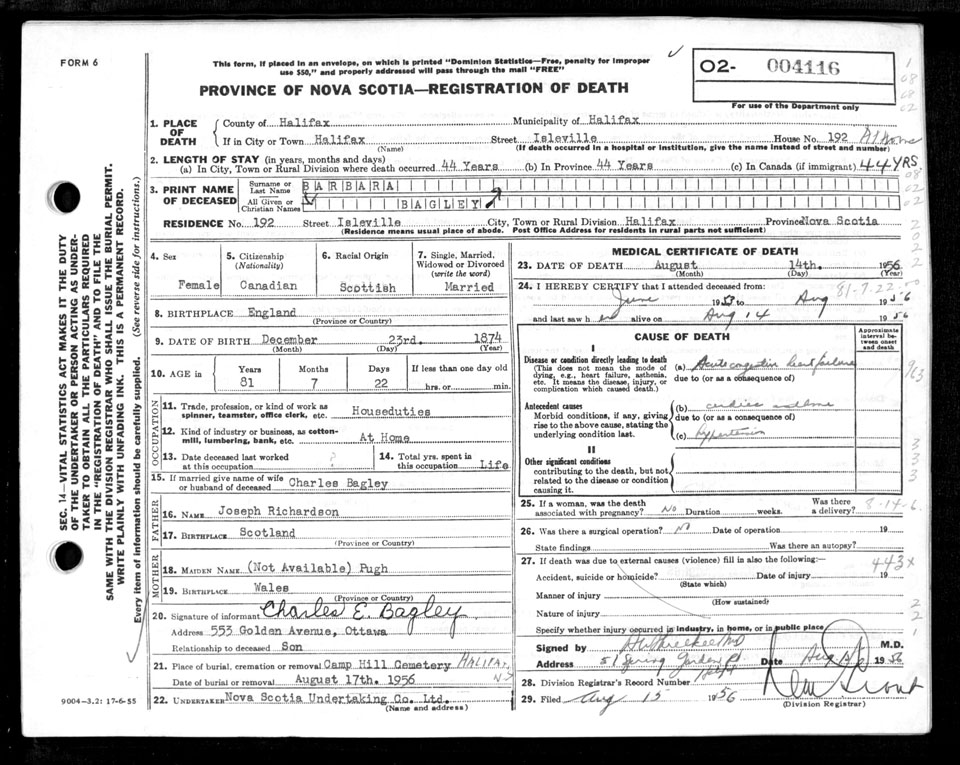 FORM 6
This form, if placed in an envelope, on which is printed "Dominion Statistics—Free, penalty for improper
use $50," and properly addressed will pass through the mail "FREE"
PROVINCE OF NOVA SCOTIA—REGISTRATION OF DEATH
O2- 004116
For use of the Department only
1. PLACE OF DEATH
County of Halifax Municipality of Halifax
If in City or Town Halifax Street Isleville House No. 192 At Home
(Name) (If death occurred in a hospital or institution, give the name instead of street and number)
2. LENGTH OF STAY (in years, months and days)
(a) In City, Town or Rural Division where death occurred 44 Years (b) In Province 44 Years (c) In Canada (if immigrant) 44 YRS
3. PRINT NAME OF DECEASED
Surname or Last Name BARBARA
All Given or Christian Names BAGLEY
RESIDENCE No. 192 Street Isleville City, Town or Rural Division Halifax Province Nova Scotia
(Residence means usual place of abode. Post Office Address for residents in rural parts not sufficient)
4. Sex
Female
5. Citizenship
(Nationality)
Canadian
6. Racial Origin
Scottish
7. Single, Married,
Widowed or Divorced
(write the word)
Married
8. BIRTHPLACE England
(Province or Country)
9. DATE OF BIRTH December 23rd. 1874
(Month) (Day) (Year)
10. AGE in Years Months Days If less than one day old
81 7 22 hrs. or min.
OCCUPATION
11. Trade, profession, or kind of work as
spinner, teamster, office clerk, etc. Houseduties
12. Kind of industry or business, as cotton-
mill, lumbering, bank, etc. At Home
13. Date deceased last worked
at this occupation ?
14. Total yrs. spent in
this occupation Life
15. If married give name of wife
or husband of deceased Charles Bagley
FATHER
16. NAME Joseph Richardson
17. BIRTHPLACE Scotland
(Province or Country)
MOTHER
18. MAIDEN NAME (Not Available) Pugh
19. BIRTHPLACE Wales
(Province or Country)
20. Signature of informant Charles E. Bagley
Address 553 Golden Avenue, Ottawa
Relationship to deceased Son
21. Place of burial, cremation or removal Camp Hill Cemetery HALIFAX
Date of burial or removal August 17th. 1956 N.S
22. UNDERTAKER Nova Scotia Undertaking Co. Ltd.
(Name and address)
MEDICAL CERTIFICATE OF DEATH
23. DATE OF DEATH August 14th. 1956
(Month) (Day) (Year)
81-7-22-00
24. I HEREBY CERTIFY that I attended deceased from:
June 1953 to Aug 1956
and last saw her alive on Aug 14 1956
CAUSE OF DEATH
Approximate
interval be-
tween onset
and death
I
Disease or condition directly leading to death
(This does not mean the mode of
dying, e.g., heart failure, asthenia,
etc. It means the disease, injury, or
complication which caused death.)
(a) Acute congestive heart failure
due to (or as a consequence of)
Antecedent causes
Morbid conditions, if any, giving
rise to the above cause, stating the
underlying condition last.
(b) cardiac asthma
due to (or as a consequence of)
(c) hypertension
II
Other significant conditions
contributing to the death, but not
related to the disease or condition
causing it.
25. If a woman, was the death
associated with pregnancy? No Duration weeks. Was there
a delivery?
8-14-6.
26. Was there a surgical operation? No Date of operation 19
State findings Was there an autopsy?
27. If death was due to external causes (violence) fill in also the following:
443x
Accident, suicide or homicide? Date of injury 19
(State which)
Manner of injury
(How sustained)
Nature of injury
Specify whether injury occurred in industry, in home, or in public place
Signed by M.D.
Address 51 Spring Garden Rd Date Aug 1956
Hfx
28. Division Registrar's Record Number
29. Filed Aug 15 1956
(Division Registrar)
SEC. 14—VITAL STATISTICS ACT MAKES IT THE DUTY
OF THE UNDERTAKER OR PERSON ACTING AS UNDER-
TAKER TO OBTAIN ALL THE PARTICULARS REQUIRED
IN THE "REGISTRATION OF DEATH" AND TO FILE THE
SAME WITH THE DIVISION REGISTRAR WHO SHALL ISSUE THE BURIAL PERMIT.
WRITE PLAINLY WITH UNFADING INK. THIS IS A PERMANENT RECORD.
Every item of information should be carefully supplied. (See reverse side for instructions.)
9004-3.2: 17-6-55